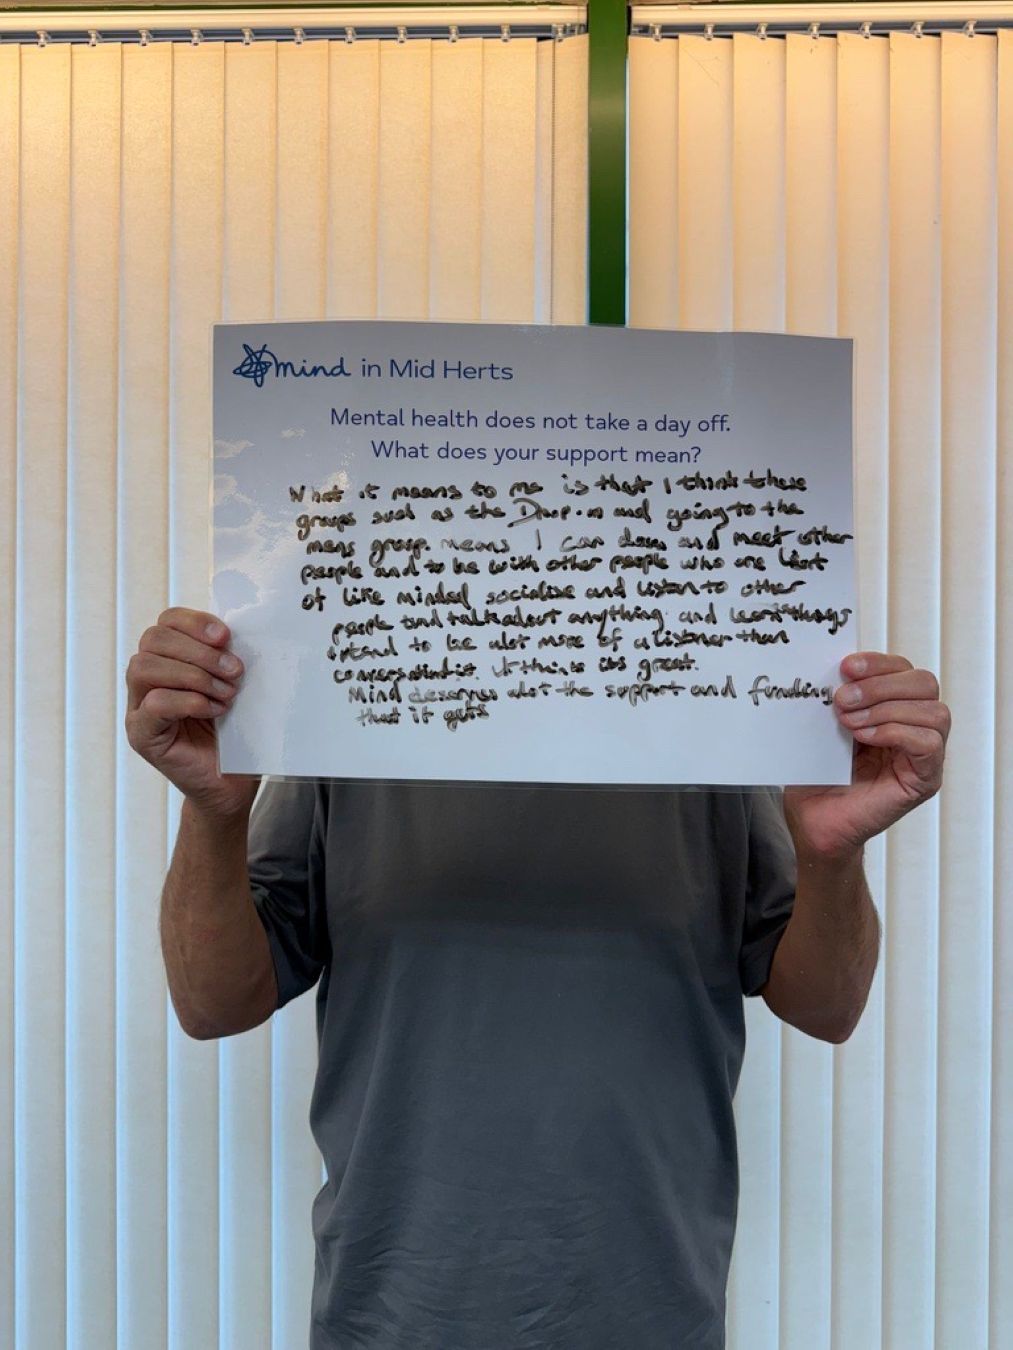 mind in Mid Herts
Mental health does not take a day off.
What does your support mean?
What it means to me is that I think these
groups such as the Drop-in and going to the
mens group. means I can down and meet other
people and to be with other people who are
of like minded socialise and listen to other
people and talk about anything and learn things
I tend to be alot more of a listner than
conversationist. I think its great.
Mind deserves alot the support and funding
that it gets